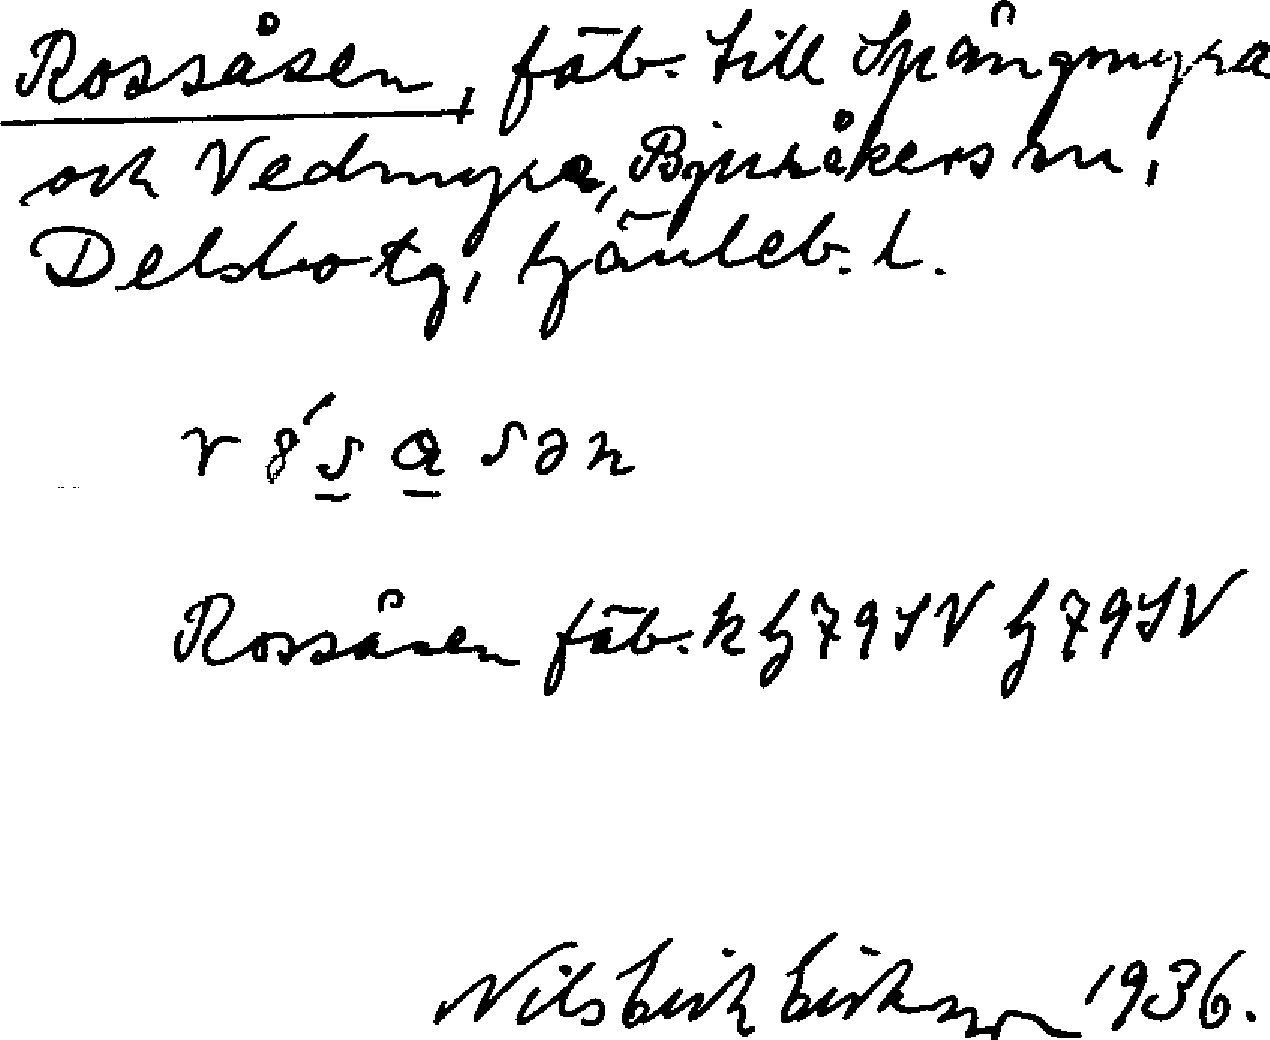 Rossåsen, fäb. till Spångmyra
och Vedmyra, Bjuråkers sn,
Delsbo tg, Gävleb. l.
Rossåsen fäb. k G79SV G79SV
Nils Erik Eriksson 1936.